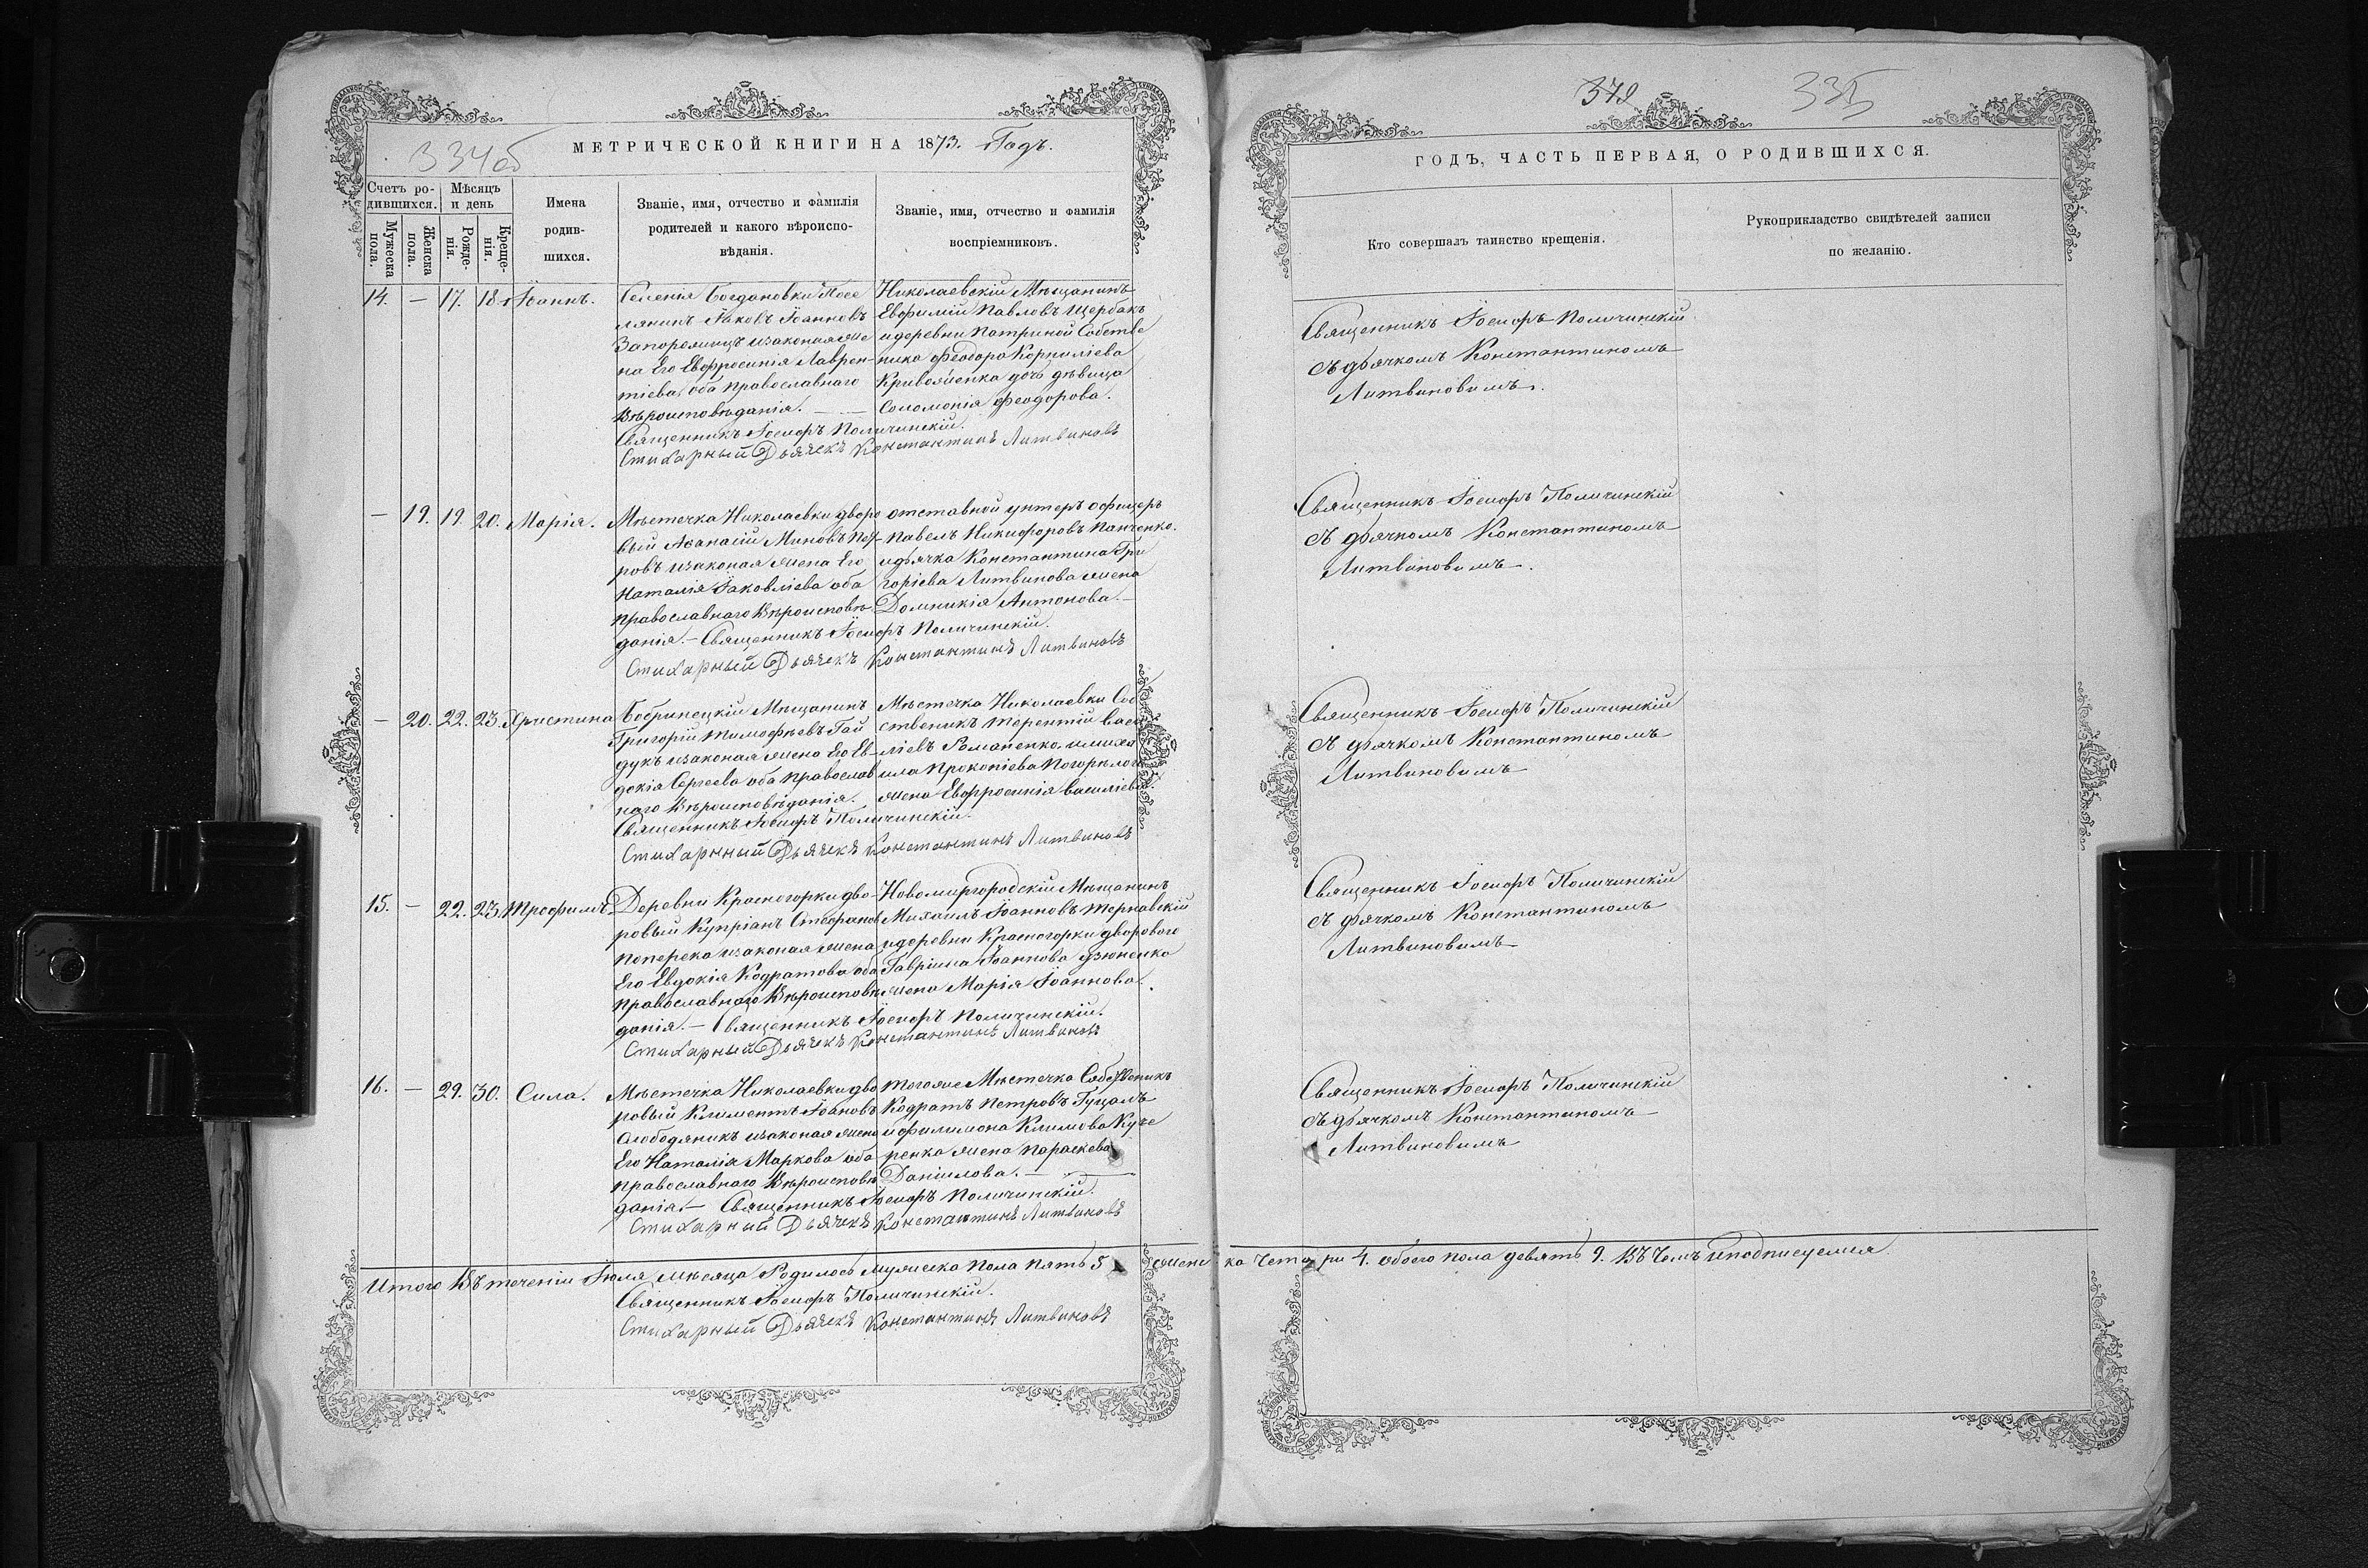 334об
МЕТРИЧЕСКОЙ КНИГИ НА 1873. Годъ.
Счетъ ро-
дившихся.
Мѣсяцъ
и день
Мужеска
пола.
Женска
пола.
Рожде-
нія.
Креще-
нія.
Имена
родив-
шихся.
Званіе, имя, отчество и фамилія
родителей и какого вѣроиспо-
вѣданія.
Званіе, имя, отчество и фамилія
воспріемниковъ.
14. — 17. 18. Іоаннъ.
Селенія Богдановки Посе
лянинъ Іаковъ Іоанновъ
Запорожецъ изаконая же
на Его Евфросинія Лаврен-
тіева, оба православнаго
Вѣроисповѣданія. —
Николаевскій Мѣщанинъ
Евфимій Павловъ Щербакъ
идеревни Натриной Собстве
ника Феодора Корниліева
дочь дѣвица
Соломонія Феодорова.
Священникъ Іосифъ Поличинскій.
Стихарный Дьячекъ Константинъ Литвиновъ
— 19. 19. 20. Марія.
Мѣстечка Николаевки дворо
вый Аѳанасій Миновъ
ровъ изаконая жена Его
Наталія Іаковліева оба
православнаго Вѣроисповѣ
данія. — Священникъ Іосифъ Поличинскій.
отставной унтеръ офицеръ
Павелъ Никифоровъ Панченко.
идьячка Константина Гри
горіева Литвинова жена
Домникія Антонова. —
Стихарный Дьячекъ Константинъ Литвиновъ
— 20. 22. 23. Христина
Бобринецкій Мѣщанинъ
Григорій Тимофѣевъ Гай
дукъ изаконая жена Его Ев-
докія Сергеева оба православ
наго Вѣроисповѣданія.
Мѣстечка Николаевки Соб
ственикъ Терентій Васи
ліевъ Романенко. имиха
ила Прокопіева
жена Евфросинія Василіева.
Священникъ Іосифъ Поличинскій.
Стихарный Дьячекъ Константинъ Литвиновъ
15. — 22. 23. Трофимъ.
Деревни Красногорки дво-
ровый Купріанъ Стефановъ
Поперека изаконая жена
Его Евдокія Кодратова оба
православнаго Вѣроисповѣ
данія. — Священникъ Іосифъ Поличинскій.
Новомиргородскій Мѣщанинъ
Михаилъ Іоанновъ Тернавскій
идеревни Красногорки дворового
Гавріила Іоаннова Дзюненка
жена Марія Іоаннова.
Стихарный Дьячекъ Константинъ Литвиновъ
16. — 29. 30. Сила.
Мѣстечка Николаевки дво
ровый Климентъ Іоановъ
Слободяникъ изаконая жена
Его Наталія Маркова оба
православнаго Вѣроисповѣ
данія. — Священникъ Іосифъ Поличинскій.
тогоже Мѣстечка Собственикъ
Кодратъ Петровъ Гуцалъ
ифилимона Климова Куче
ренка жена Параскева
Даніилова. —
Стихарный Дьячекъ Константинъ Литвиновъ
Итого Въ теченіи Іюля мѣсяца Родилось мужеска пола пять 5 женска четыри 4. обоего пола девять 9. Въ чемъ иподписуемся
Священникъ Іосифъ Поличинскій.
Стихарный Дьячекъ Константинъ Литвиновъ
379
335
ГОДЪ, ЧАСТЬ ПЕРВАЯ, О РОДИВШИХСЯ.
Кто совершалъ таинство крещенія.
Рукоприкладство свидѣтелей записи
по желанію.
Священникъ Іосифъ Поличинскій
съ дьячкомъ Константиномъ
Литвиновымъ.
Священникъ Іосифъ Поличинскій
съ дьячкомъ Константиномъ
Литвиновымъ.
Священникъ Іосифъ Поличинскій
съ дьячкомъ Константиномъ
Литвиновымъ
Священникъ Іосифъ Поличинскій
съ дьячкомъ Константиномъ
Литвиновымъ
Священникъ Іосифъ Поличинскій
съ дьячкомъ Константиномъ
Литвиновымъ